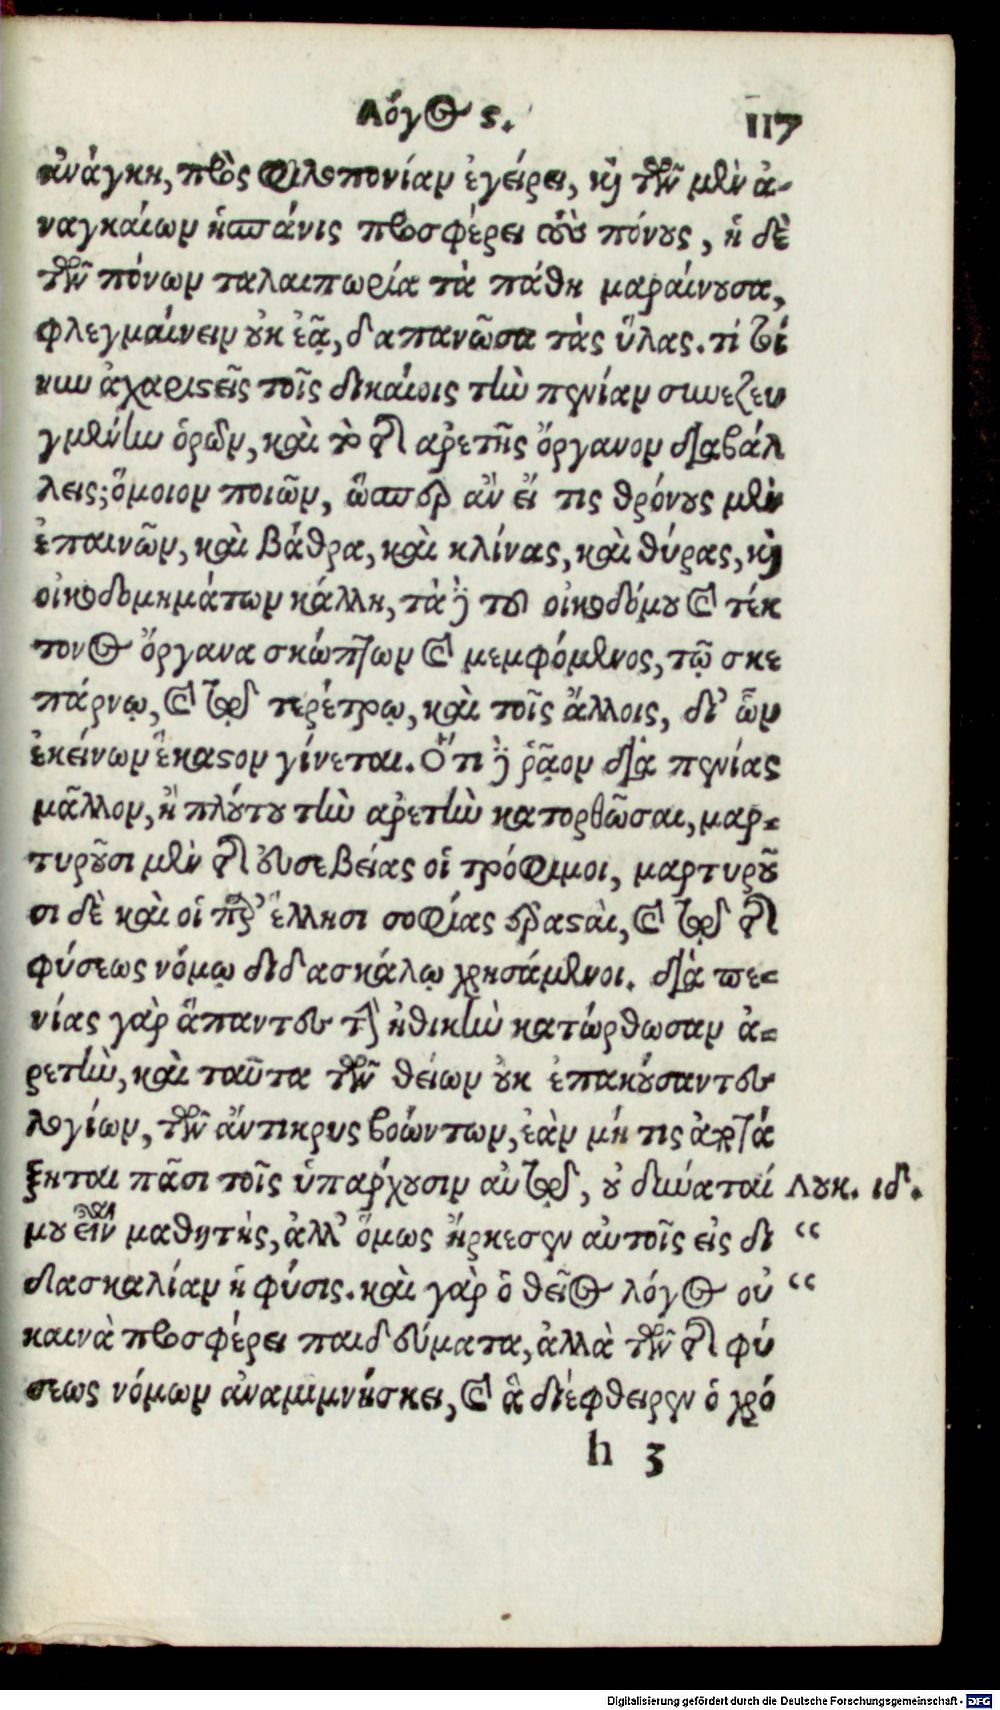 Λόγος ϛ. 117
ἀνάγκη, πρὸς φιλοπονίαν ἐγείρει, καὶ τῶν μὲν ἀ-
ναγκαίων ἡ σπάνις προσφέρει τοὺς πόνους, ἡ δὲ
τῶν πόνων ταλαιπωρία τὰ πάθη μαραίνουσα,
φλεγμαίνειν οὐκ ἐᾷ, δαπανῶσα τὰς ὕλας. τί τοί
νυν ἀχαριστεῖς τοῖς δικαίοις τὴν πενίαν συνεζευ
γμένην ὁρῶν, καὶ τὸ τῆς ἀρετῆς ὄργανον διαβάλ
λεις; ὅμοιον ποιῶν, ὥσπερ ἂν εἴ τις θρόνους μὲν
ἐπαινῶν, καὶ βάθρα, καὶ κλίνας, καὶ θύρας, καὶ
οἰκοδομημάτων κάλλη, τὰ δὲ τοῦ οἰκοδόμου καὶ τέκ
τονος ὄργανα σκώπτων καὶ μεμφόμενος, τῷ σκε
πάρνῳ, καὶ τῷ τερέτρῳ, καὶ τοῖς ἄλλοις, δι’ ὧν
ἐκείνων ἕκαστον γίνεται. Ὅτι δὲ ῥᾷον διὰ πενίας
μᾶλλον, ἢ πλούτου τὴν ἀρετὴν κατορθῶσαι, μαρ-
τυροῦσι μὲν τῆς εὐσεβείας οἱ τρόφιμοι, μαρτυροῦ
σι δὲ καὶ οἱ παρ’ ἕλλησι σοφίας ἐρασταὶ, καὶ τῷ τῆς
φύσεως νόμῳ διδασκάλῳ χρησάμενοι. διὰ πε-
νίας γὰρ ἅπαντες τὴν ἠθικὴν κατώρθωσαν ἀ-
ρετὴν, καὶ ταῦτα τῶν θείων οὐκ ἐπακούσαντες
λογίων, τῶν ἄντικρυς βοώντων, ἐὰν μή τις ἀποτά
ξηται πᾶσι τοῖς ὑπάρχουσιν αὐτῷ, οὐ δύναταί Λουκ. ιδ.
μου εἶναι μαθητὴς, ἀλλ’ ὅμως ἤρκεσεν αὐτοῖς εἰς δι “
δασκαλίαν ἡ φύσις. καὶ γὰρ ὁ θεῖος λόγος οὐ “
καινὰ προσφέρει παιδεύματα, ἀλλὰ τῶν τῆς φύ
σεως νόμων ἀναμιμνήσκει, καὶ ἃ διέφθειρεν ὁ χρό
h 3
Digitalisierung gefördert durch die Deutsche Forschungsgemeinschaft - DFG